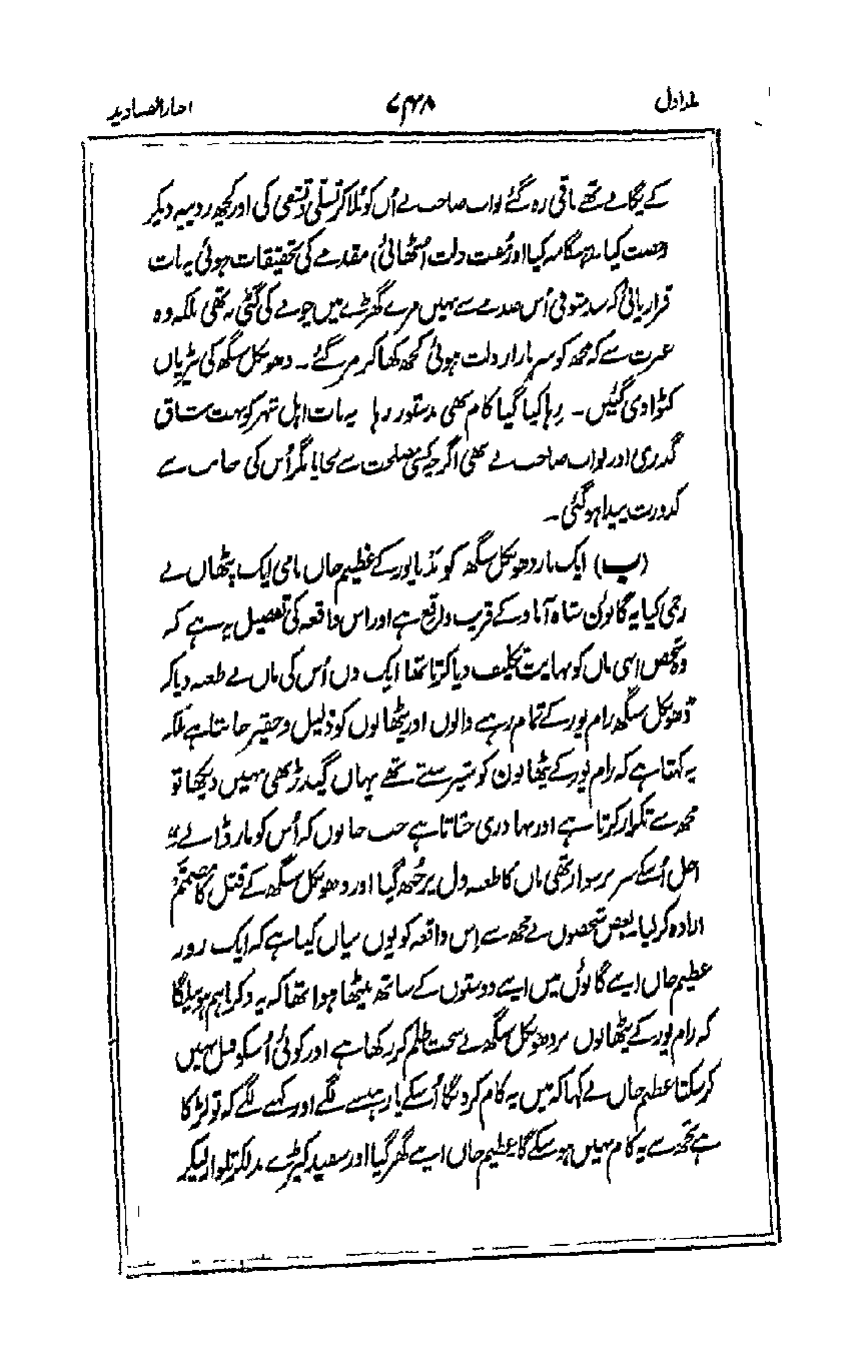 جلد اول ۷۴۸ اخبار الصنادید
کے یگانے تھے باقی رہ گئے نواب صاحب نے اُن کو بلاکر تسلی وتشفی کی اور کچھ روپیہ دیکر
رخصت کیا ہنگامہ کیا اور مُفت ذلت اُٹھائی) مقدمے کی تحقیقات ہوئی یہ بات
قرار پائی کہ سید متوفی اُس صدمے سے نہیں مرے گھڑے میں چونے کی گئی نہ تھی بلکہ وہ
غیرت سے کہ مجھ کو سر بازار ذلت ہوئی کچھ کھا کر مر گئے۔ دھونکل سنگھ کی بیڑیاں
کٹوا دی گئیں۔ رہا کیا گیا کام بھی بدستور رہا یہ بات اہل شہر کو بہت شاق
گذری اور نواب صاحب نے بھی اگرچہ کسی مصلحت سے بچایا مگر اُس کی جانب سے
کدورت پیدا ہوگئی۔
(ب) ایک بار دھونکل سنگھ کو نذیاپور کے عظیم خاں نامی ایک پٹھان نے
زخمی کیا یہ گانوُن شاہ آباد کے قریب واقع ہے اور اس واقعہ کی تفصیل یہ ہے کہ
وہ شخص اپنی ماں کو نہایت تکلیف دیا کرتا تھا ایک دن اُس کی ماں نے طعنہ دیا کہ
دھونکل سنگھ رام پور کے تمام رہنے والوں اور پٹھانوں کو ذلیل وحقیر جانتا ہے بلکہ
یہ کہتا ہے کہ رام پور کے پٹھانون کو شیر سنتے تھے یہاں گیدڑ بھی نہیں دیکھا تو
مجھ سے تکرار کرتا ہے اور بہادری جتاتا ہے جب جانوں کہ اُس کو مار ڈالے"
اجل اُسکے سر پر سوار تھی ماں کا طعنہ دل پر چُبھ گیا اور دھونکل سنگھ کے قتل کا مصمّم
ارادہ کر لیا بعض شخصوں نے مجھ سے اِس واقعہ کو یوں بیاں کیا ہے کہ ایک روز
عظیم خاں اپنے گانوُں میں اپنے دوستوں کے ساتھ بیٹھا ہوا تھا کہ یہ ذکر باہم ہونے لگا
کہ رام پور کے پٹھانوں پر دھونکل سنگھ نے سخت ظلم کر رکھا ہے اور کوئی اُسکو قتل نہیں
کر سکتا عظیم خاں نے کہا کہ میں یہ کام کرونگا اُسکے یار ہنسنے لگے اور کہنے لگے کہ تو لڑکا
ہے تجھ سے یہ کام نہیں ہو سکے گا عظیم خاں اپنے گھر گیا اور سفید کپڑے بدلکر تلوار لیکر